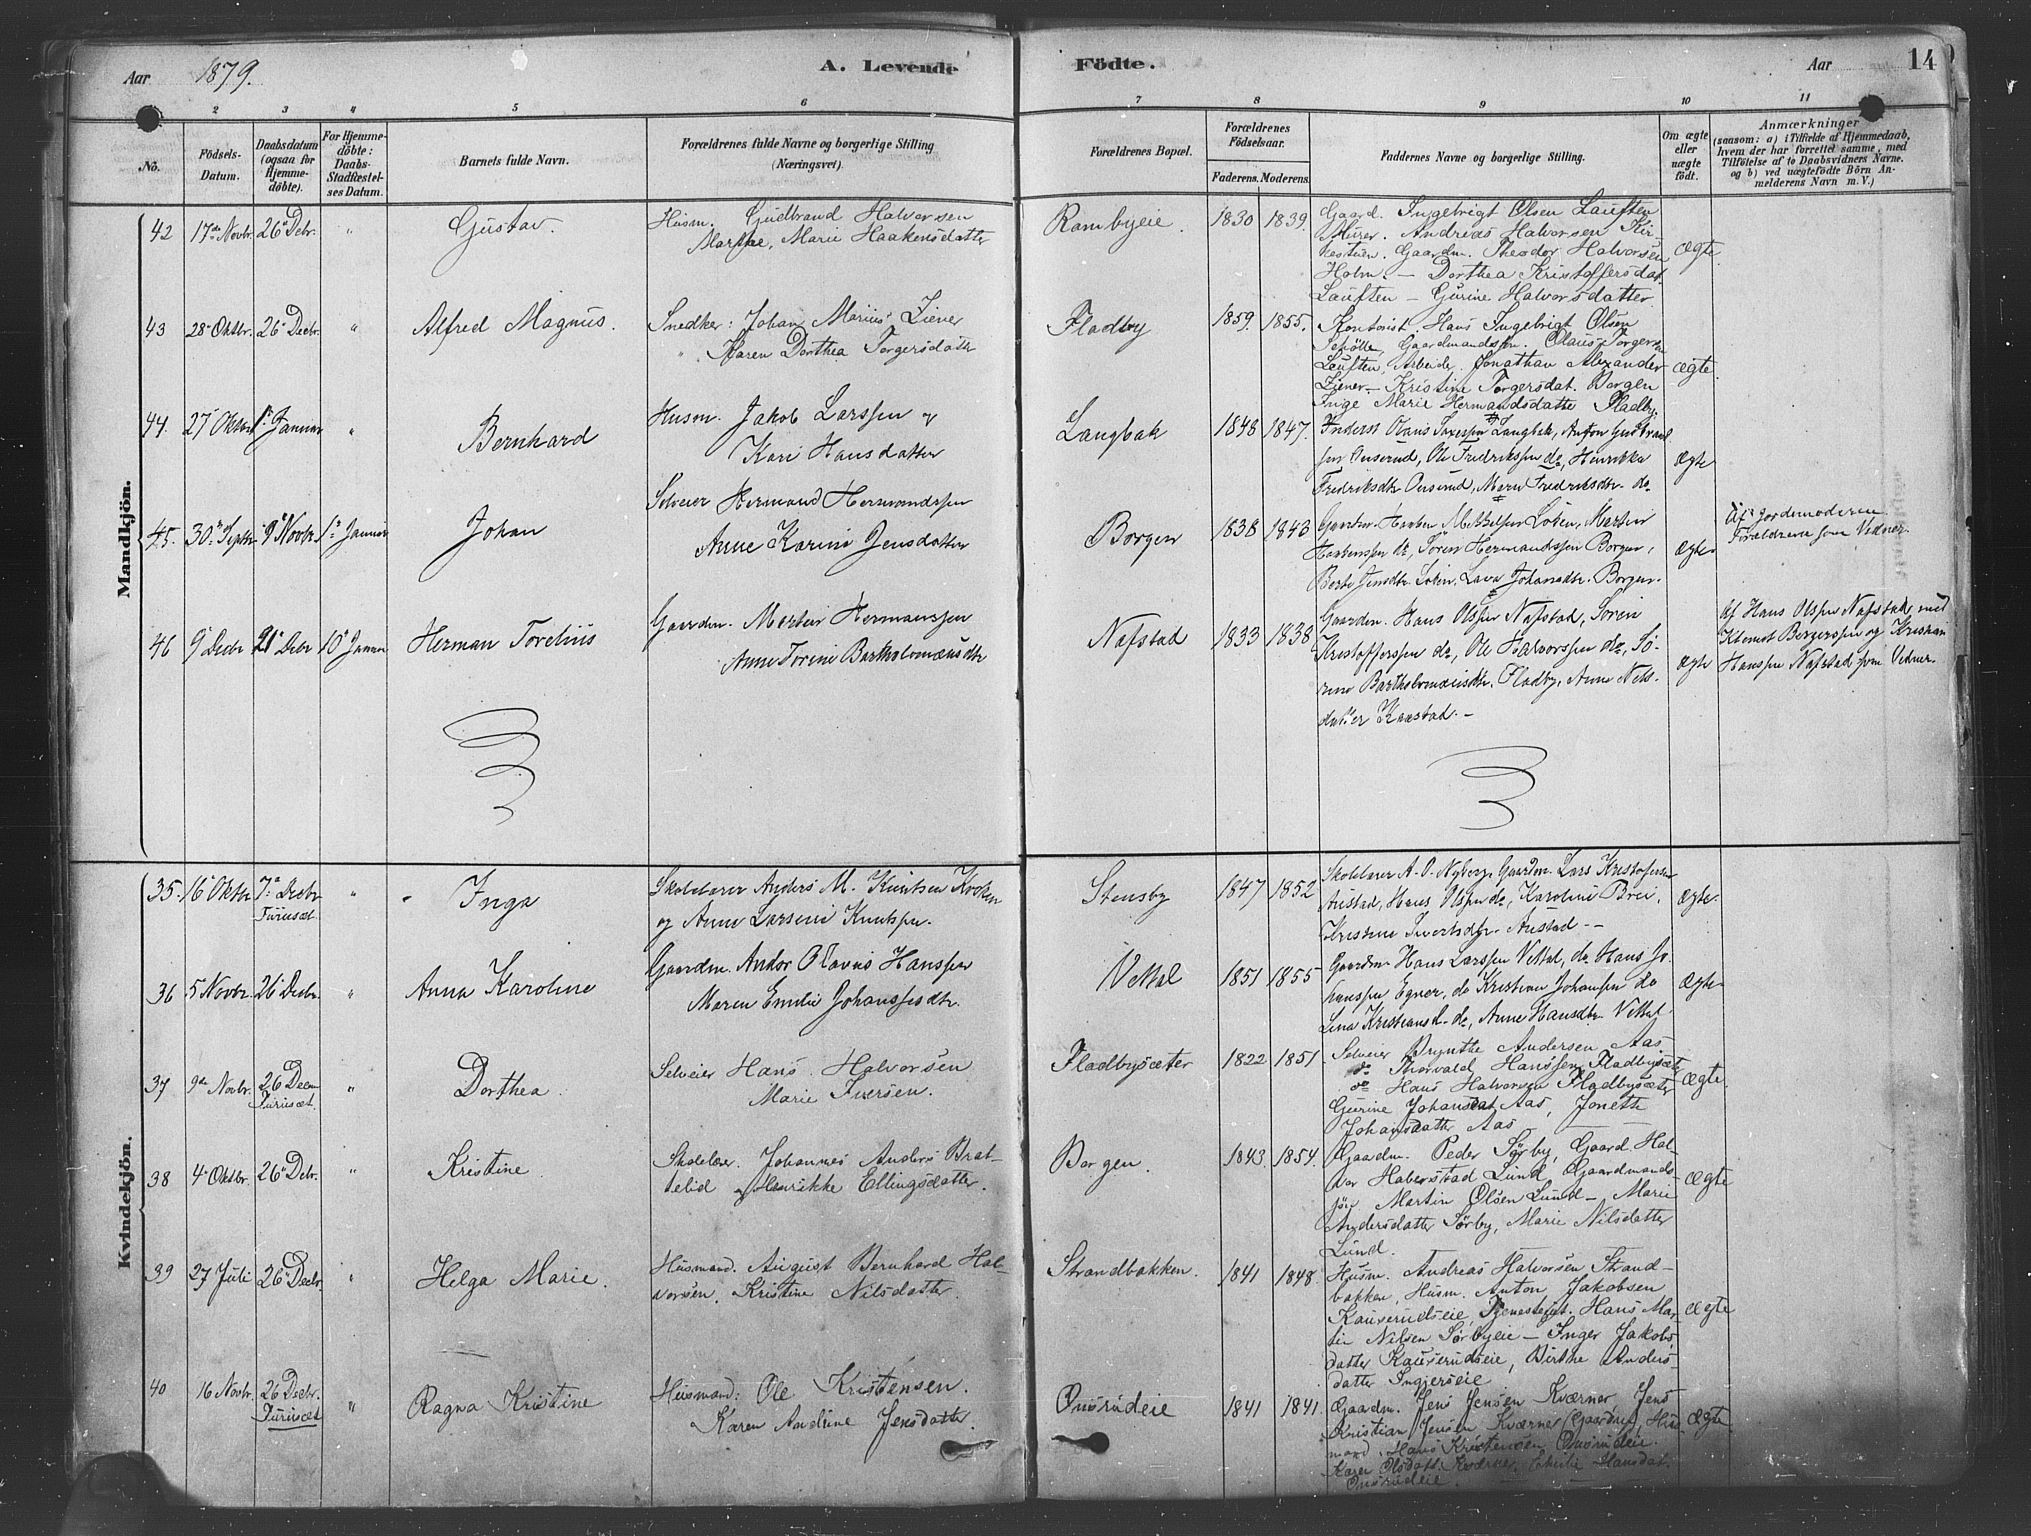 Aar 1879. A. Levende Födte. Aar 14
2 3 4 5 6 7 8 9 10 11
No. Födsels-Datum. Daabsdatum (ogsaa for Hjemmedöbte). For Hjemmedöbte: Daabs-Stadfæstelses Datum. Barnets fulde Navn. Forældrenes fulde Navne og borgerlige Stilling (Næringsvei). Forældrenes Bopæl. Forældrenes Födselsaar. Faderens. Moderens. Faddernes Navne og borgerlige Stilling. Om ægte eller uægte födt. Anmærkninger (saasom: a) i Tilfælde af Hjemmedaab, hvem der har forrettet samme, med Tilföielse af to Daabsvidners Navne. og b) ved uægtefödte Börn Anmelderens Navn m. V.)
Mandkjön.
42 17de Novbr. 26 Debr. " Gustav. Husm. Gudbrand Halvorsen
Marthe Marie Haakensdatter
Rambyeie. 1830 1839. Gaard. Ingebrigt Olsen Lauften
Murer. Andreas Halvorsen Kir
kestuen. Gaardm. Theodor Halvorsen
Holm. – Dorthea Kristoffersdat.
Lauften – Gurine Halvorsdatter
ægte.
43 28 Oktbr. 26 Decbr. " Alfred Magnus. Snedker: Johan Marius Ziener
" Karen Dorthea Torgersdatter
Fladby 1859. 1855. Kontorist. Hans Ingebrigt Olsen
Schötte, Gaardmandssøn. Olaus Torgersen
Lauften, Arbeide. Jonathan Alexander
Ziener – Kristine Torgersdat. Borgen
Inge Marie Hermandsdatte Fladby.
ægte.
44. 27 Oktbr 1 Januar " Bernhard Husm. Jakob Larssen og
Kari Hansdatter
Langbak 1848 1847. Inderst Hans Langbak, Anton Gudbrand
sen Onserud, Ole Fredrikssen do, Henrikke
Fredriksdtr Onserud, Maren Fredriksdtr. do.
Ægte
45. 30 Septbr 9 Novbr 1 Januar Johan Selveier Hermand Hermandssen
Anne Karine Jensdatter
Borgen 1838 1843 Gaardm. Haaken Loken, Martin
Haakenssen do, Sören Hermandssen Borgen,
Berte Jensdtr. Loken, Lava Johansdtr. Borgen.
Ægte Af Jordemoderen
Forældrene som Vidner.
46 9 Decbr 21 Debr 10 Januar Herman Torelius Gaardm. Martin Hermanssen
Anne Torine Bartholomæusdtr
Nafstad 1833 1838 Gaardm. Hans Olssen Nafstad, Sören
Kristofferssen do, Ole Halvorssen do, Sö-
rine Bartholomæusdtr. Fladby, Anne Nils-
datter Kaustad. –
Ægte Af Hans Olssen Nafstad med
Klemet Bergerssen og Kristian
Hanssen Nafstad som Vidner.
Kvindekjön.
35. 16 Oktbr 7 Decbr Furuset " Inga Skolelærer Anders M. Knutsen Kroken
og Anne Larsine Knutssen.
Stensby 1847 1852 Skolelærer A. O. Nyborg, Gaardm. Lars Kristofersen
Austad, Hans Olssen do, Karoline Brei,
Kristine Ivertsdtr. Austad. –
Ægte.
36 5 Novbr. 26 Decbr. " Anna Karoline Gaardm. Andor Olavus Hanssen
Maren Emilie Johanssesdtr.
Vettal 1851 1855 Gaardm Hans Larssen Vettal, do Hans Jo
hanssen Egner, do Kristian Johanssen do
Lina Kristiansd. do, Anne Hansdtr. Vettal
Ægte
37 9de Novbr. 26 Decm Furuset. " Dorthea. Selveier Hans Halvorsen
Marie Iversen.
Fladbysæter 1822 1851. Selveier Brynthe Andersen Aas
do Thorvald Hanssen Fladbysæte
do Hans Halvorsen Fladbysæter
Gurine Johansdat Aas, Jonette
Johansdatter Aas
Ægte.
38 4 Oktbr. 26 Debr. " Kristine Skolelær. Johannes Anders Brat-
telid og Henrikke Ellingsdatter.
Borgen. 1843 1854. Gaardm. Peder Sørby, Gaard Hal-
vor Haberstad Lund Gaardmands-
søn Martin Olsen Lund – Marie
Andersdatter Sørby, Marie Nilsdatter
Lund.
ægte
39 27 Juli 26 Decbr " Helga Marie. Husmand. August Bernhard Hal-
vorsen. Kristine Nilsdatter.
Strandbakken. 1841 1848. Husm. Andreas Halvorsen Strand-
bakken, Husm. Anton Jakobsen
Kauserudseie, Tjenestegt. Hans Mar-
tin Nilsen Sørbyeie – Inger Jakobs
datter Kauserudseie, Birthe Anders-
datter Ingjerseie
Ægte
40 16 Novbr. 26 Decbr. Furuset " Ragna Kristine Husmand: Ole Kristensen.
Karen Andrine Jensdatter
Onsrudeie 1841 1841. Gaardm. Jens Jensen Kværner Jens
Kristian Jensen Kværner (Gaardm), Hus
mand. Hans Kristensen Onsrudeie.
Karen Olsdatt. Kværner, Emilie Hansdat.
Onsrudeie.
Ægte